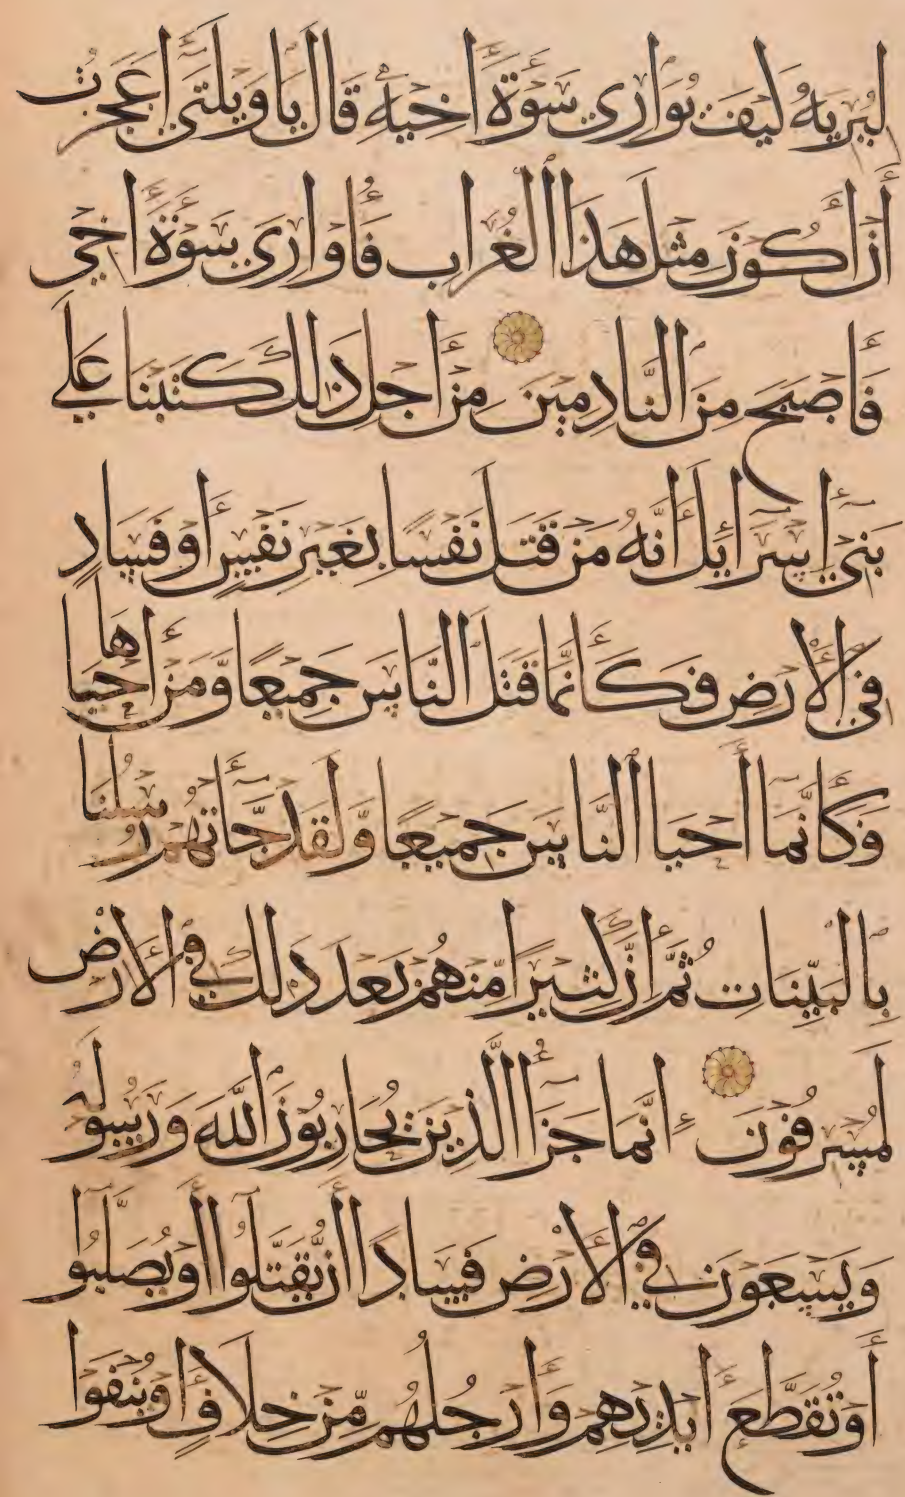 لِيُرِيَهُ كَيْفَ يُوَارِي سَوْءَةَ أَخِيهِ قَالَ يَا وَيْلَتَى أَعَجَزْتُ
أَنْ أَكُونَ مِثْلَ هَذَا الْغُرَابِ فَأُوَارِيَ سَوْءَةَ أَخِي
فَأَصْبَحَ مِنَ النَّادِمِينَ مِنْ أَجْلِ ذَلِكَ كَتَبْنَا عَلَى
بَنِي إِسْرَائِلَ أَنَّهُ مَنْ قَتَلَ نَفْسًا بِغَيْرِ نَفْسٍ أَوْ فَسَادٍ
فِي الْأَرْضِ فَكَأَنَّمَا قَتَلَ النَّاسَ جَمِيعًا وَّمَنْ أَحْيَاهَا
فَكَأَنَّمَا أَحْيَا النَّاسَ جَمِيعًا وَّلَقَدْ جَّاءَتْهُمْ رُسُلُنَا
بِالْبَيِّنَاتِ ثُمَّ إِنَّ كَثِيرًا مِّنْهُمْ بَعْدَ ذَلِكَ فِي الْأَرْضِ
لَمُسْرِفُونَ إِنَّمَا جَزَاءُ الَّذِينَ يُحَارِبُونَ اللَّهَ وَرَسُولَهُ
وَيَسْعَوْنَ فِي الْأَرْضِ فَسَادًا أَنْ يُّقَتَّلُوا أَوْ يُصَلَّبُوا
أَوْ تُقَطَّعَ أَيْدِيهِمْ وَأَرْجُلُهُمْ مِّنْ خِلَافٍ أَوْ يُنْفَوْا